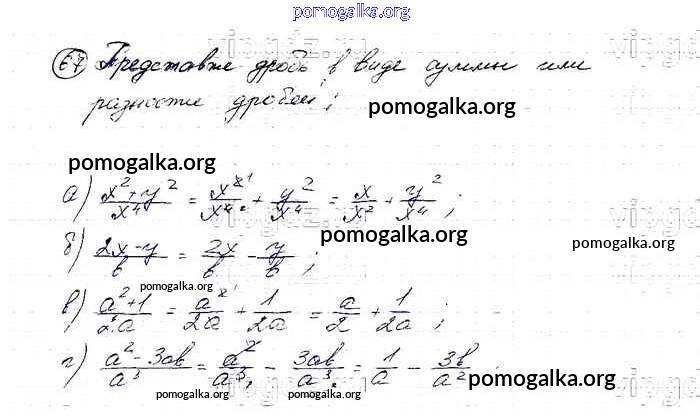 pomogalka.org
67 Представьте дробь в виде суммы или
разности дробей;
pomogalka.org
pomogalka.org
а) x²+y²/x⁴ = x²/x⁴ + y²/x⁴ = x/x² + y²/x⁴;
pomogalka.org
pomogalka.org
б) 2x-y/b = 2x/b - y/b;
pomogalka.org
в) a²+1/2a = a²/2a + 1/2a = a/2 + 1/2a;
г) a²-3ab/a³ = a²/a³ - 3ab/a³ = 1/a - 3b/a²
pomogalka.org
pomogalka.org